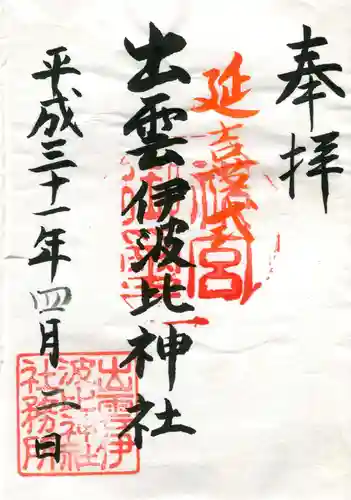 奉拝
延喜式宮
出雲伊波比神社
平成三十一年四月二日
出雲伊
波比神社
社務所